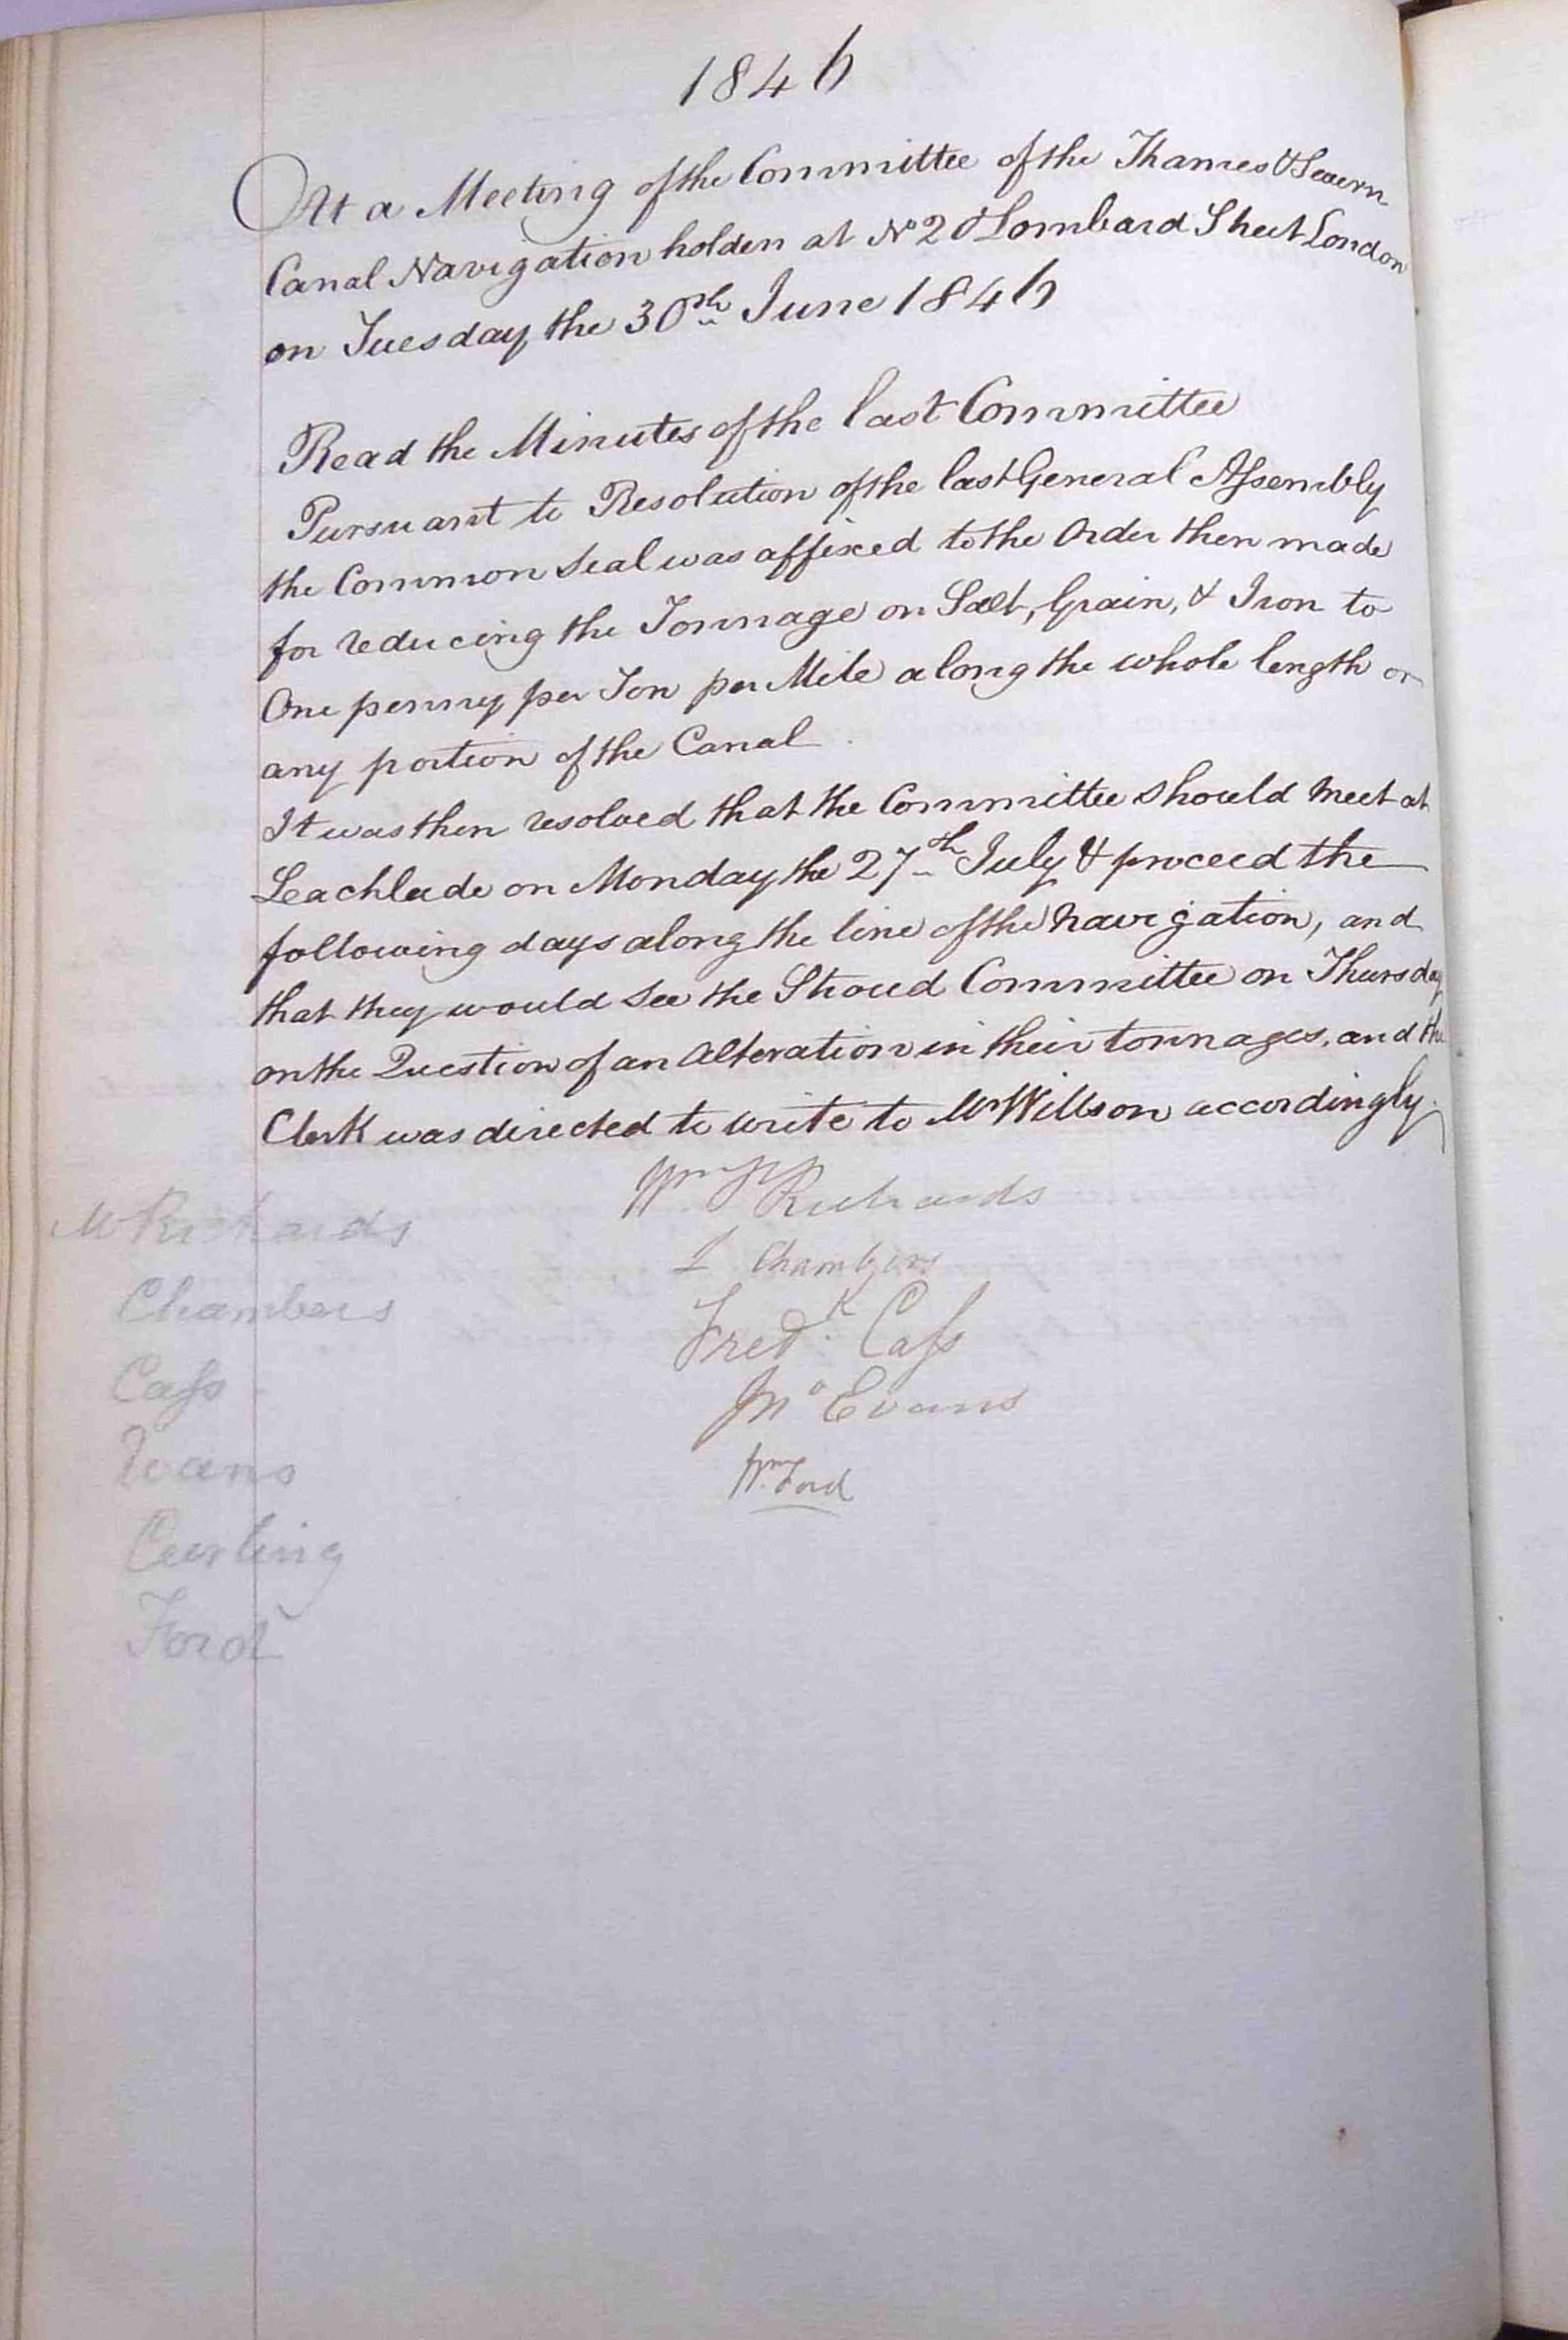 1846
At a Meeting of the Committee of the Thames & Severn
Canal Navigation holden at No 20 Lombard Street London
on Tuesday the 30th June 1846
Read the Minutes of the last Committee
Pursuant to Resolution of the last General Assembly
the Common Seal was affixed to the Order then made
for reducing the Tonnage on Salt, Grain, & Iron to
One penny per Ton per Mile along the whole length or
any portion of the Canal
It was then resolved that the Committee should meet at
Leachlade on Monday the 27th July & proceed the
following days along the line of the Navigation, and
that they would see the Stroud Committee on Thursday
on the Question of an alteration in their tonnages, and the
Clerk was directed to write to Mr Wilson accordingly.
Mr Richards
Chambers
Cass
Evans
Curling
Ford
Wm Richards
Chambers
Fredk. Cass
Jno Evans
Wm Ford